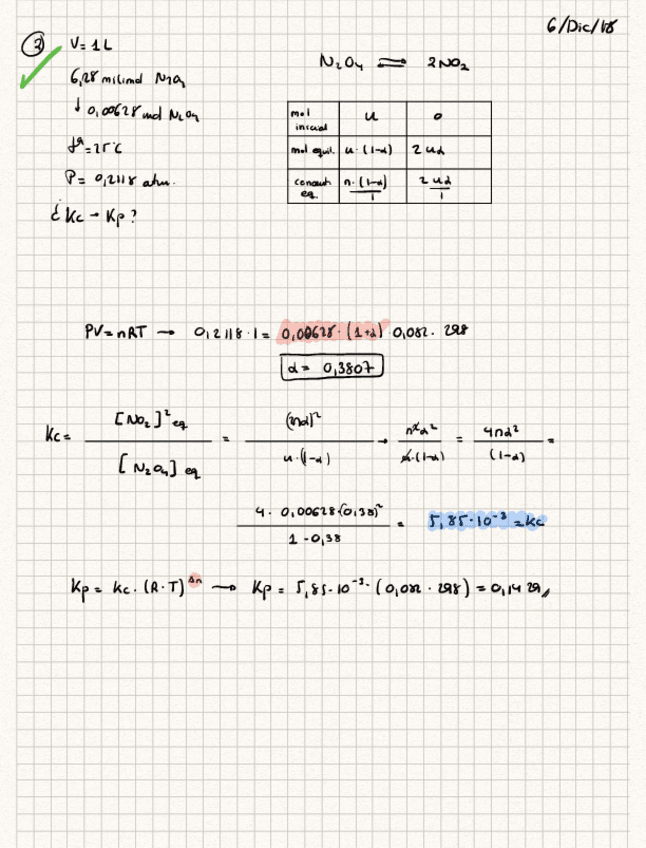 6/Dic/18
② V= 1L
6,28 milimol N₂O₄
N₂O₄ ⇌ 2NO₂
↓ 0,00628 mol N₂O₄
Tª=25°C
P= 0,2118 atm.
¿ Kc - Kp?
mol inicial | n | 0
mol equil. | n·(1-α) | 2nα
concent. eq. | n·(1-α)/1 | 2nα/1
PV=nRT → 0,2118·1= 0,00628·(1+α) 0,082·298
α= 0,3807
Kc= [NO₂]²eq / [N₂O₄] eq = (2nα)² / n·(1-α) → n²α² / n·(1-α) = 4nα² / (1-α) =
4·0,00628·(0,38)² / 1-0,38 = 5,85·10⁻³ =Kc
Kp= Kc·(R·T)^Δn → Kp= 5,85·10⁻³·(0,082·298) = 0,1429//